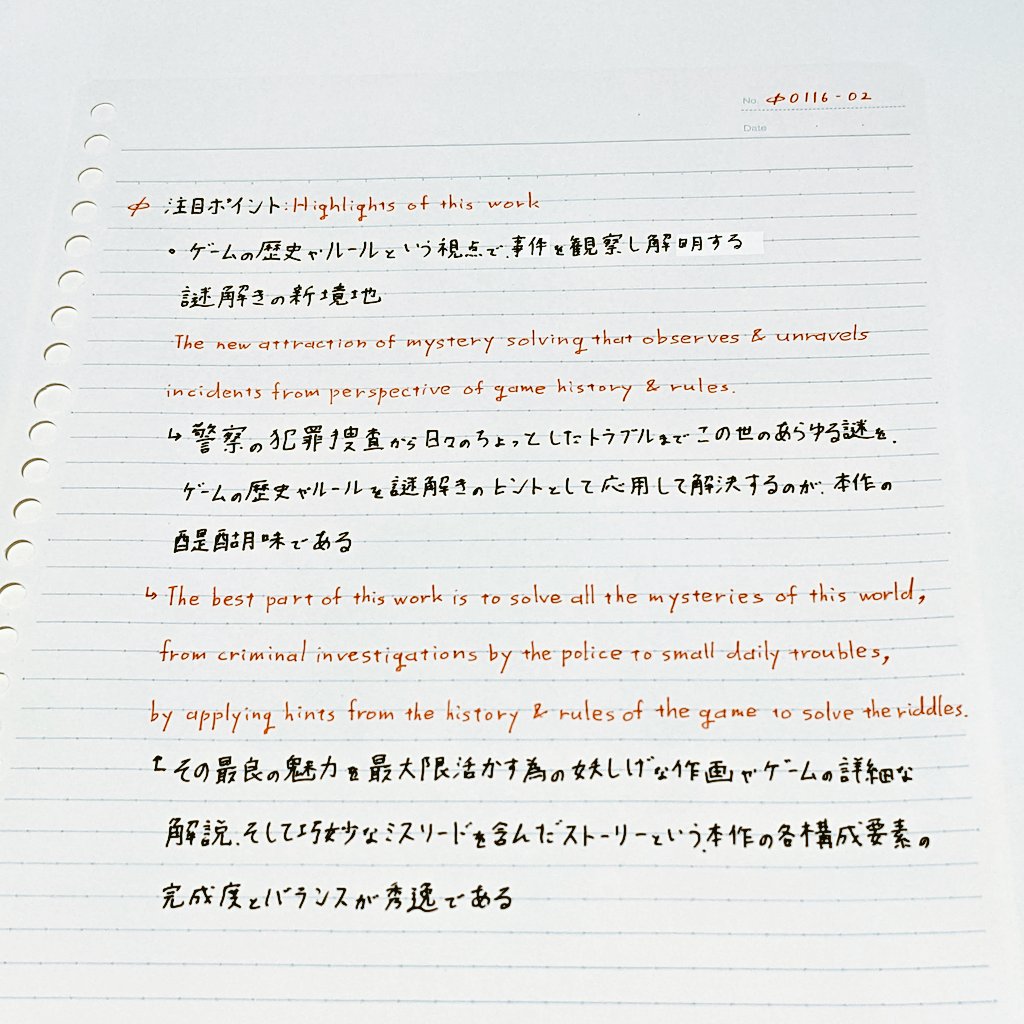 No. φ0116-02
Date
φ 注目ポイント:Highlights of this work
• ゲームの歴史やルールという視点で、事件を観察し解明する
謎解きの新境地
The new attraction of mystery solving that observes & unravels
incidents from perspective of game history & rules.
↳ 警察の犯罪捜査から日々のちょっとしたトラブルまでこの世のあらゆる謎を、
ゲームの歴史やルールを謎解きのヒントとして応用して解決するのが、本作の
醍醐味である
↳ The best part of this work is to solve all the mysteries of this world,
from criminal investigations by the police to small daily troubles,
by applying hints from the history & rules of the game to solve the riddles.
↑ その最良の魅力を最大限活かす為の妖しげな作画やゲームの詳細な
解説、そして巧妙なミスリードを含んだストーリーという、本作の各構成要素の
完成度とバランスが秀逸である